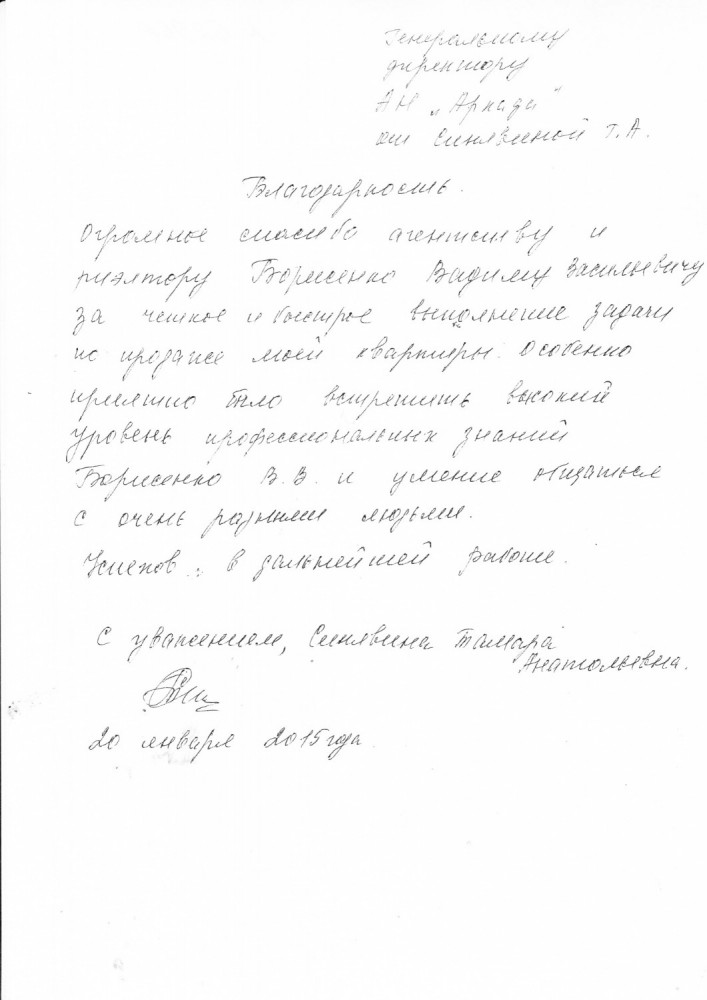 Генеральному
директору
АН „Аркада"
от Синявиной Т.А.
Благодарность.
Огромное спасибо агентству и
риэлтору Борисенко Вадиму Васильевичу
за четкое и быстрое выполнение задачи
по продаже моей квартиры. Особенно
приятно было встретить высокий
уровень профессиональных знаний
Борисенко В.В. и умение общаться
с очень разными людьми.
Успехов в дальнейшей работе.
С уважением, Синявина Тамара
Анатольевна.
20 января 2015 года